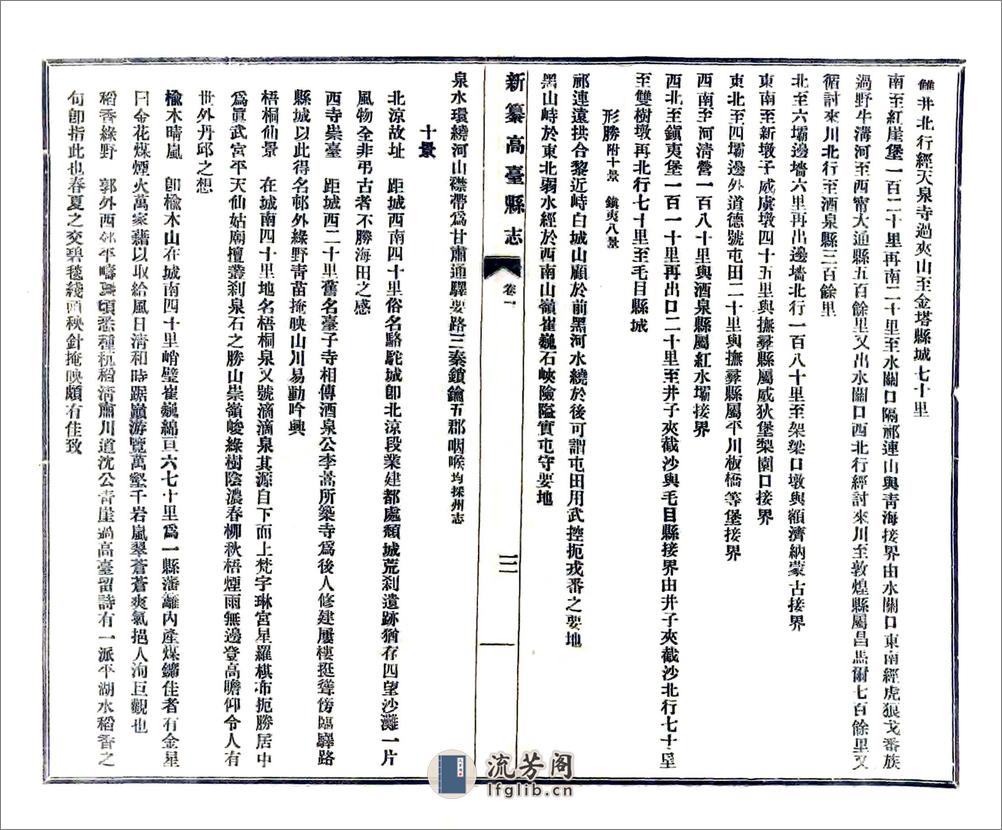 雙井北行經天泉寺過夾山至金塔縣城七十里
南至紅崖堡一百二十里再南二十里至水關口隔祁連山與青海接界由水關口東南經虎狼戈番族
過野牛溝河至西甯大通縣五百餘里又出水關口西北行經討來川至敦煌縣屬昌馬爾七百餘里又
循討來川北行至酒泉縣三百餘里
北至六壩邊墻六里再出邊墻北行一百八十里至架梁口墩與額濟納蒙古接界
東南至新墩子威虜墩四十五里與撫彝縣屬威狄堡梨園口接界
東北至四壩邊外道德號屯田二十里與撫彝縣屬平川板橋等堡接界
西南至河清營一百八十里與酒泉縣屬紅水壩接界
西北至鎮夷堡一百一十里再出口二十里至井子夾截沙與毛目縣接界由井子夾截沙北行七十里
至雙樹墩再北行七十里至毛目縣城
形勝附十景 鎮夷八景
祁連遠拱合黎近峙白城山顧於前黑河水繞於後可謂屯田用武控扼戎番之要地
黑山峙於東北弱水經於西南山嶺崔巍石峽險隘實屯守要地
新纂高臺縣志 卷一 三
泉水環繞河山襟帶爲甘肅通驛要路三秦鎖鑰五郡咽喉均採州志
十景
北涼故址 距城西南四十里俗名駱駝城卽北涼段業建都處頹城荒刹遺跡猶存四望沙灘一片
風物全非弔古者不勝海田之感
西寺崇臺 距城西二十里舊名臺子寺相傳酒泉公李暠所築寺爲後人修建屢樓挺聳傍臨驛路
縣城以此得名邨外綠野青苗掩映山川易動吟興
梧桐仙景 在城南四十里地名梧桐泉又號滴滴泉其源自下而上梵宇琳宮星羅棋布扼勝居中
爲眞武宮平天仙姑廟檀叢刹泉石之勝山崇嶺峻綠樹陰濃春柳秋梧煙雨無邊登高瞻仰令人有
世外丹邱之想
楡木晴嵐 卽楡木山在城南四十里峭壁崔巍綿亘六七十里爲一縣藩離內產煤鑛佳者有金星
曰金花煤煙火萬家藉以取給風日淸和時踞巔游覽萬壑千岩嵐翠蒼蒼爽氣挹人洵巨觀也
稻香綠野 郭外西郊平疇萬頃悉種秔稻淸肅川道沈公青崖過高臺留詩有一派平湖水稻香之
句卽指此也春夏之交碧毯綫頭秧針掩映頗有佳致
流芳阁
lfglib.cn